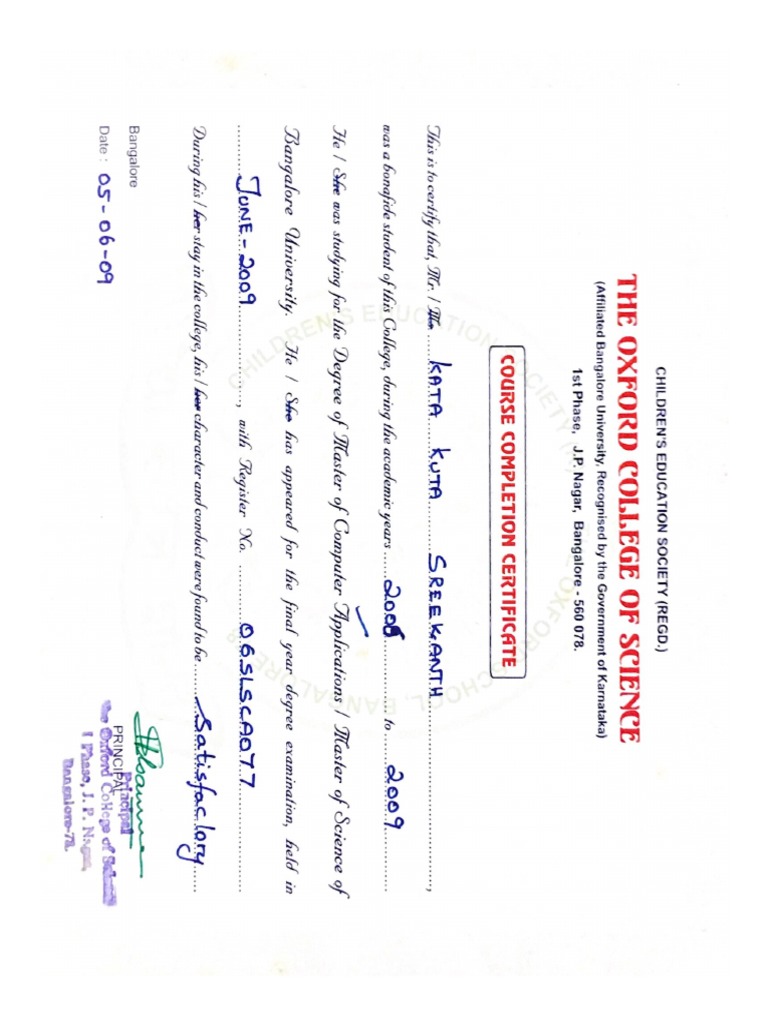 CHILDREN'S EDUCATION SOCIETY (REGD.)
THE OXFORD COLLEGE OF SCIENCE
(Affiliated Bangalore University, Recognised by the Government of Karnataka)
1st Phase, J.P. Nagar, Bangalore - 560 078.
COURSE COMPLETION CERTIFICATE
This is to certify that, Mr. / Ms. KATA KUTA SREEKANTH,
was a bonafide student of this College, during the academic years 2008 to 2009
He / She was studying for the Degree of Master of Computer Applications / Master of Science of
Bangalore University. He / She has appeared for the final year degree examination, held in
JUNE-2009, with Register No. 06SLSCA077
During his / her stay in the college, his / her character and conduct were found to be Satisfactory
Bangalore
Date : 05-06-09
PRINCIPAL
Principal
The Oxford College of Science
I Phase, J. P. Nagar,
Bangalore-78.
CHILDREN'S EDUCATION SOCIETY
OXFORD SCHOOL, BANGALORE-78